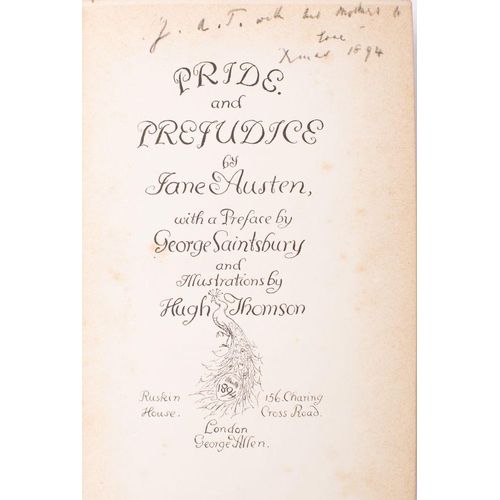 J. A. T. with her Mother's
love
Xmas 1894
PRIDE.
and
PREJUDICE
by
Jane Austen,
with a Preface by
George Saintsbury
and
Illustrations by
Hugh Thomson
1894
Ruskin House.
156. Charing Cross Road.
London
George Allen.